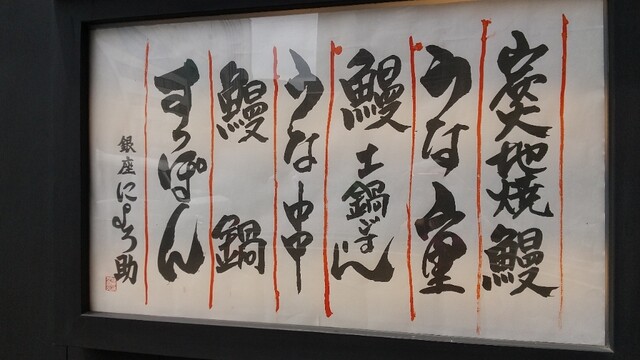 炭地焼鰻
うな重
鰻土鍋ごはん
うな串
鰻鍋
すっぽん
銀座にょろ助